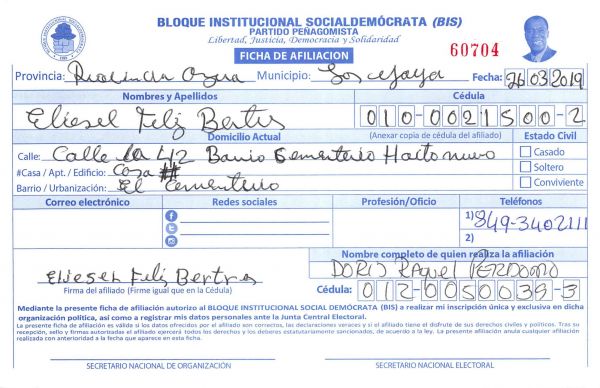 BLOQUE INSTITUCIONAL SOCIALDEMÓCRATA (BIS)
PARTIDO PEÑAGOMISTA
Libertad, Justicia, Democracia y Solidaridad
FICHA DE AFILIACION
60704
Provincia: Municipio: Fecha: 26 03 2019
Nombres y Apellidos Cédula
Eliesel Feliz Bertres 010-0021500-2
Domicilio Actual (Anexar copia de cédula del afiliado) Estado Civil
Calle: Calle la 42 Barrio Cementerio Hacto nuevo Casado
#Casa / Apt. / Edificio: Casa # Soltero
Barrio / Urbanización: El Cementerio Conviviente
Correo electrónico Redes sociales Profesión/Oficio Teléfonos
1) 849-3402111
2)
Nombre completo de quien realiza la afiliación
Eliesel Feliz Bertres DORIS RAQUEL PERDOMO
Firma del afiliado (Firme igual que en la Cédula) Cédula: 012-0050039-3
Mediante la presente ficha de afiliación autorizo al BLOQUE INSTITUCIONAL SOCIAL DEMÓCRATA (BIS) a realizar mi inscripción única y exclusiva en dicha
organización política, así como a registrar mis datos personales ante la Junta Central Electoral.
La presente ficha de afiliación es válida si los datos ofrecidos por el afiliado son correctos, las declaraciones veraces y si el afiliado tiene el disfrute de sus derechos civiles y políticos. Tras su
recepción, sello y firmas autorizadas el afiliado ejercerá todos los derechos y los deberes estatutariamente sancionados, de acuerdo a la ley. La presente afiliación anula cualquier afiliación
realizada con anterioridad a la fecha que aparece en esta ficha.
SECRETARIO NACIONAL DE ORGANIZACIÓN SECRETARIO NACIONAL ELECTORAL